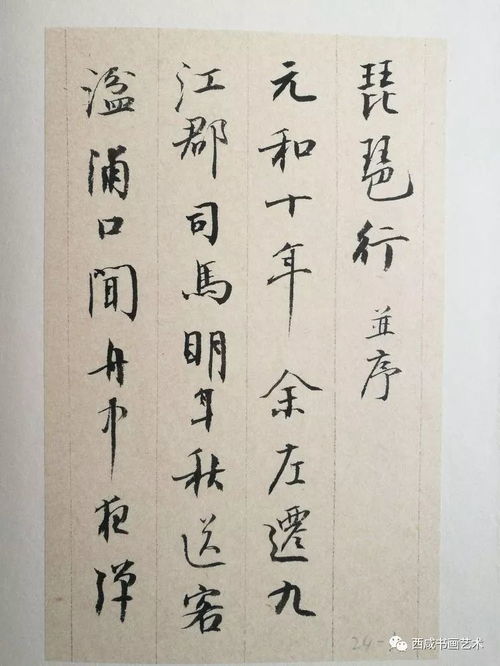 琵琶行 並序
元和十年余左遷九
江郡司馬明年秋送客
湓浦口聞舟中夜弹
24-
西咸书画艺术